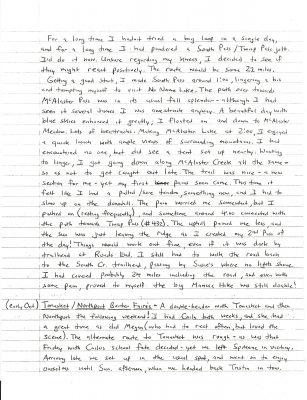 For a long time I hadn't tried a big loop in a single day,
and for a long time I had pondered a South Pass / Twisp Pass jolt.
I'd do it now. Unsure regarding my knees, I decided to see if
they might react positively. The route would be some 26 miles.
Getting a good start, I made South Pass around 1:00, lingering a bit
and tempting myself to visit No Name Lake. The path over towards
McAlester Pass was in its usual fall splendor - although I had
seen it several times I was overtaken anyway. A beautiful day with
blue skies enhanced it greatly; I floated on and down to McAlester
Meadow. Lots of hectorinks. Making McAlester Lake at 2:00, I enjoyed
a quick lunch with ample views of surrounding mountains. I had
encountered no one, but did see a tent set up nearby. Wanting
to linger, I got going down along McAlester Creek all the same -
so as not to get caught out late. The trail was nice - a new
section for me - yet my first pains soon came. This time it
felt like I had a pulled/sore tendon something now, and I had to
slow up on the downhill. The pain worried me somewhat, but I
pushed on (resting frequently), and sometime around 4:00 connected with
the path towards Twisp Pass (#432). The uphill pained me less and
the sun was just leaving the ridge as I crested my 2nd Pass of
the day! Things would work out fine even if it was dark by
trailhead at Roads End. I still had to walk the road back
to the South Cr. trailhead, passing by Juno's where no lights shone.
I had covered probably 27 miles including the road, and even with
some pain, proved to myself the big Mamas Hike was still doable!
(Early Oct) Tonasket / Northport Barter Faires - A double-header with Tonasket and then
Northport the following weekend! I had Carlos both weeks, and she had
a great time as did Megan (who had to rest often, but loved the
scene). The alternate route to Tonasket was rough - as was that
Friday with Carlos school fate decided - yet we left Spokane in victory.
Arriving late we set up in the usual spot, and went on to enjoy
ourselves until Sun. afternoon, when we headed back Twisp in tow.